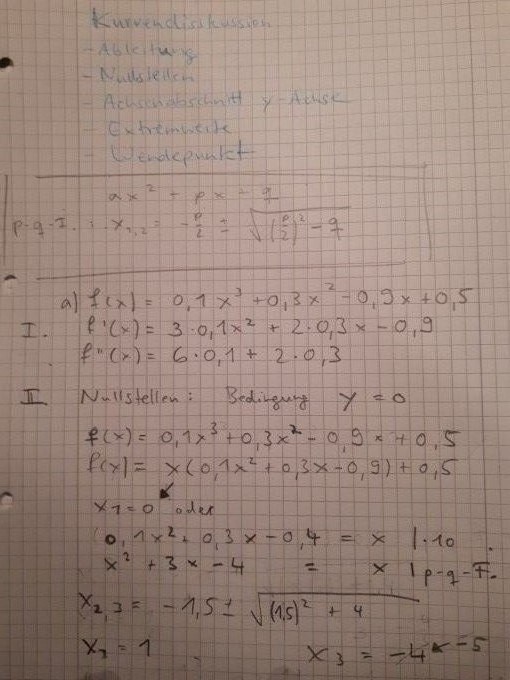 Kurvendiskussion
- Ableitung
- Nullstellen
- Achsenabschnitt y-Achse
- Extremwerte
- Wendepunkt
ax² + px - q
p-q-F. : x₁,₂ = -p/2 ± √((p/2)² - q)
a) f(x) = 0,1x³ + 0,3x² - 0,9x + 0,5
I. f'(x) = 3·0,1x² + 2·0,3x - 0,9
f"(x) = 6·0,1 + 2·0,3
II Nullstellen: Bedingung y = 0
f(x) = 0,1x³ + 0,3x² - 0,9x + 0,5
f(x) = x(0,1x² + 0,3x - 0,9) + 0,5
x₁ = 0 oder
0,1x² + 0,3x - 0,4 = x |·10
x² + 3x - 4 = x | p-q-F.
x₂,₃ = -1,5 ± √((1,5)² + 4
x₂ = 1 x₃ = -4 ← -5